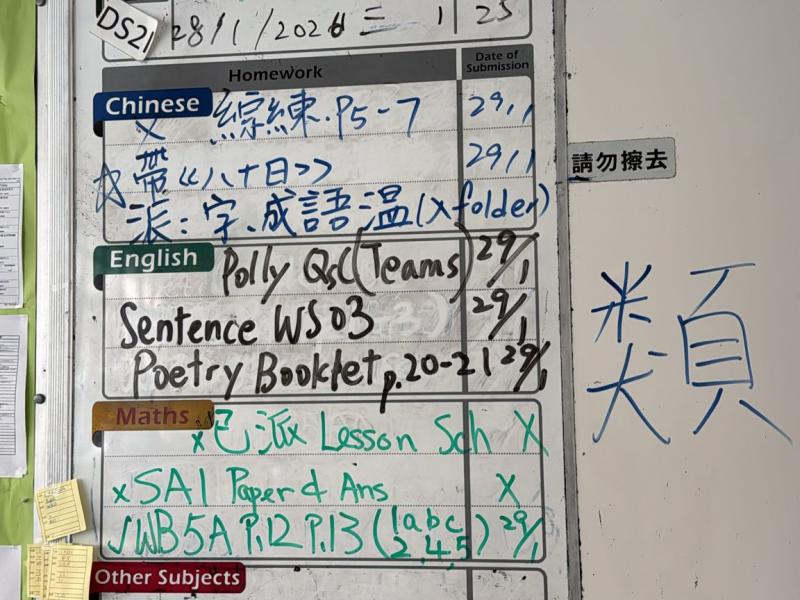 DS21
28/1/2026 二 1 25
Homework
Date of Submission
Chinese
綜練.P5-7 29/1
帶《八十日》 29/1
請勿擦去
派:字、成語溫(x folder)
English
Polly Qs((Teams) 29/1
Sentence WS03 29/1
類
Poetry Booklet p.20-21 29/1
Maths
x已派x Lesson Sch X
xSA1 Paper & Ans X
√WB5A P.12 P.13 (1abc 2,4,5) 29/1
Other Subjects